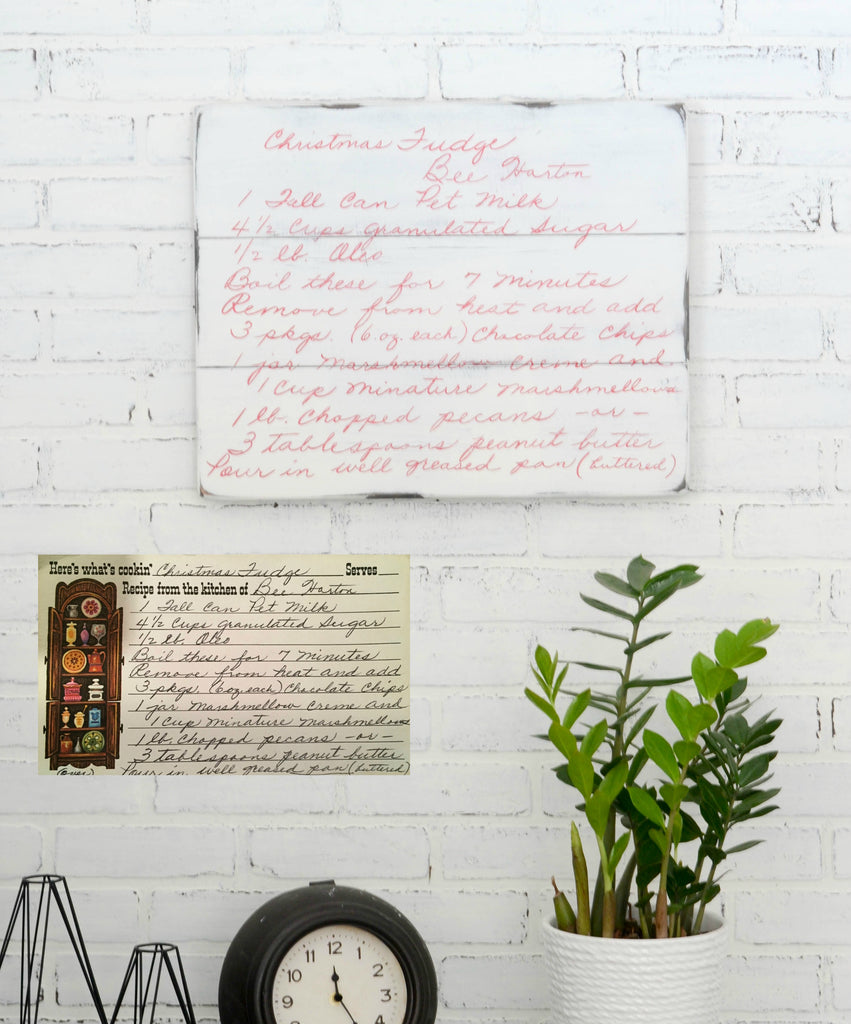 Christmas Fudge
Bee Harton
1 Tall Can Pet Milk
4 1/2 Cups granulated Sugar
1/2 lb. Oleo
Boil these for 7 Minutes
Remove from heat and add
3 pkgs. (6 oz. each) Chocolate Chips
1 jar Marshmellow Creme and
1 Cup Minature Marshmellows
1 lb. Chopped pecans -or-
3 tablespoons peanut butter
Pour in well greased pan (buttered)
Here's what's cookin' Christmas Fudge Serves
Recipe from the kitchen of Bee Harton
1 Tall Can Pet Milk
4 1/2 Cups granulated Sugar
1/2 lb. Oleo
Boil these for 7 Minutes
Remove from heat and add
3 pkgs. (6 oz. each) Chocolate Chips
1 jar Marshmellow Creme and
1 Cup Minature Marshmellows
1 lb. Chopped pecans -or-
3 tablespoons peanut butter
(over) Pour in well greased pan (buttered)
11 12 1
10 2
9 3
4